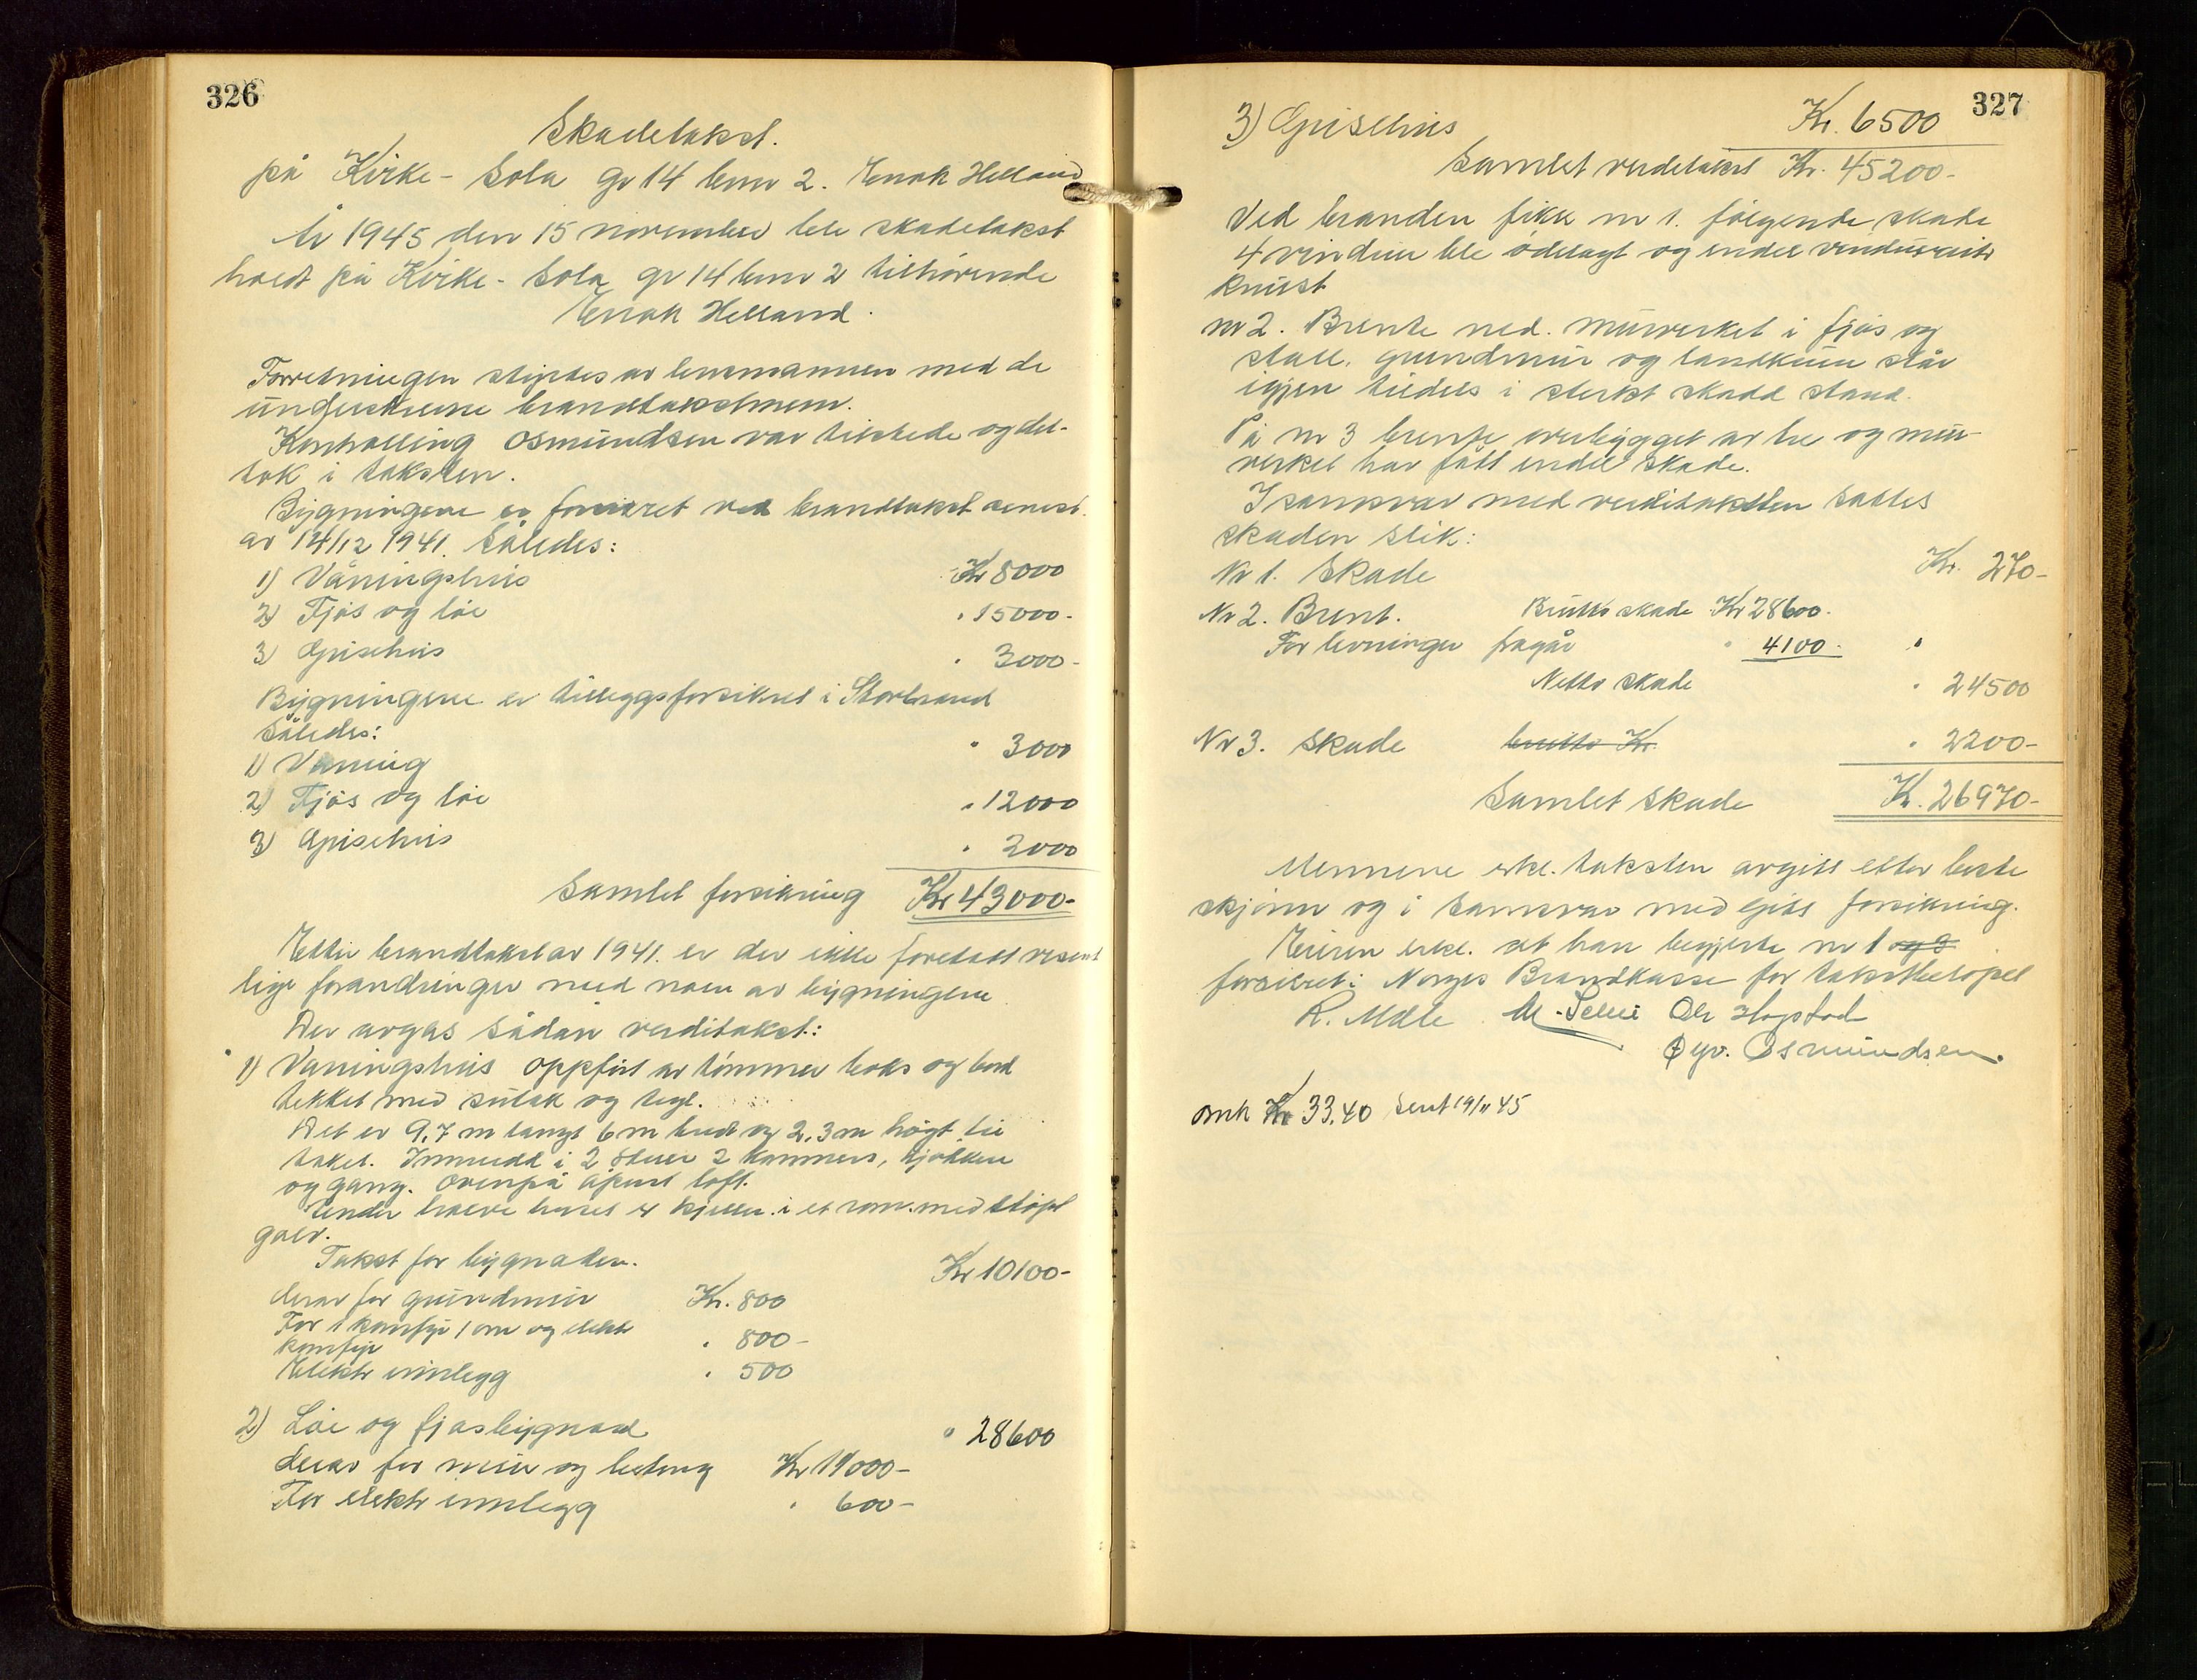 326
Skadetakst.
på Kirke-Sola gr 14 bnr 2. Enok Helland
År 1945 den 15 november ble skadetakst
holdt på Kirke-Sola gr 14 bnr 2 tilhørende
Enok Helland.
Forretningen styrtes av lensmannen med de
underskrevne brandtakstmenn.
Kontrolling Osmundsen var tilstede og del-
tok i taksten.
Bygningene er forsikret ved brandtakst
av 14/12 1941. Således:
1) Våningshus Kr 8000
2) Fjøs og løe " 15000-
3) Grisehus " 3000-
Bygningene er tilleggsforsikret i Storbrand
således:
1) Våning " 3000
2) Fjøs og løe " 12000
3) Grisehus " 2000
Samlet forsikring Kr 43000-
Etter brandtakst av 1941. er der ikke foretatt vesent
lige forandringer med noen av bygningene
Der avgas sådan verditakst:
1) Våningshus oppført av tømmer boks og bord
tekket med sutak og tegl.
Det er 9,7 m langt 6 m bredt og 2,3 m høgt til
taket. Innredd i 2 stuer 2 kammers, kjøkken
og gang. Ovenpå åpent loft.
Under halve huset er kjeller i et rom. med støpt
golv.
Takst for bygnaden. Kr 10100-
derav for grundmur Kr. 800
For 1 komfyr 1 ovn og elektr
komfyr " 800-
Elektr innlegg " 500
2) Løe og fjøsbygnad " 28600
derav for mur og betong Kr 11000-
For elektr innlegg " 600-
327
3) Grisehus Kr. 6500
Samlet verditakst Kr. 45200-
Ved branden fikk nr 1. følgende skade
4 vinduer ble ødelagt og endel vindusruter
knust
nr 2. Brente ned. murverket i fjøs og
stall. grundmur og landkum står
igjen tildels i sterkt skadd stand.
På nr 3 brente overbygget av tre og mur-
verket har fått endel skade.
I samsvar med verditaksten sattes
skaden slik:
Nr 1. Skade Kr. 270-
Nr 2. Brent. Brutto skade Kr 28600.
For levninger fragår " 4100- "
Netto skade " 24500
Nr 3. Skade brutto Kr. " 2200-
Samlet skade Kr. 26970-
Mennene erkl. taksten avgitt etter beste
skjønn og i samsvar med gitt forsikring.
Eieren erkl. at han begjerte nr 1 og 2
forsikret i Norges Brandkasse for takstbeløpet
R. Mæle M. Selle Ole Hogstad
Øyv. Osmundsen.
omk Kr 33.40 Sent 19/11 45